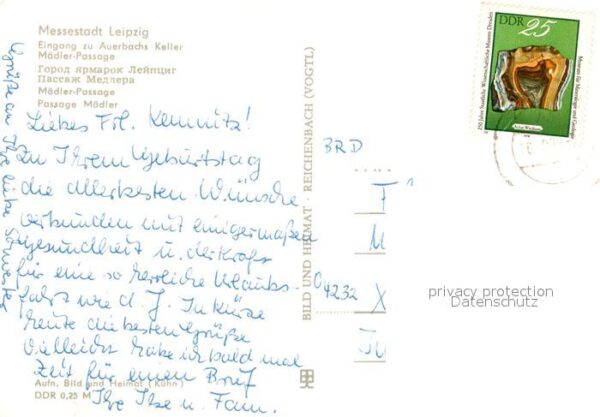 Messestadt Leipzig
Eingang zu Auerbachs Keller
Mädler-Passage
Город ярмарок Лейпциг
Пассаж Медлера
Mädler-Passage
Passage Mädler
Liebes Frl. Kemnitz!
Zu Ihrem Geburtstag
die allerbesten Wünsche
verbunden mit einigermaßen
Gesundheit u. der Kraft
für eine so herrliche Urlaubs-
fahrt wie d. J. In Kürze
heute die besten Grüße
vielleicht habe ich bald mal
Zeit für einen Brief
Ihre Ilse u. Fam.
Grüße an Ihre liebe Schwester
Aufn. Bild und Heimat (Kühn)
DDR 0,25 M
BILD UND HEIMAT · REICHENBACH (VOGTL)
BRD
4232 X
privacy protection
Datenschutz
DDR 25
250 Jahre Staatliche Wissenschaftliche Museen Dresden
Museum für Mineralogie und Geologie